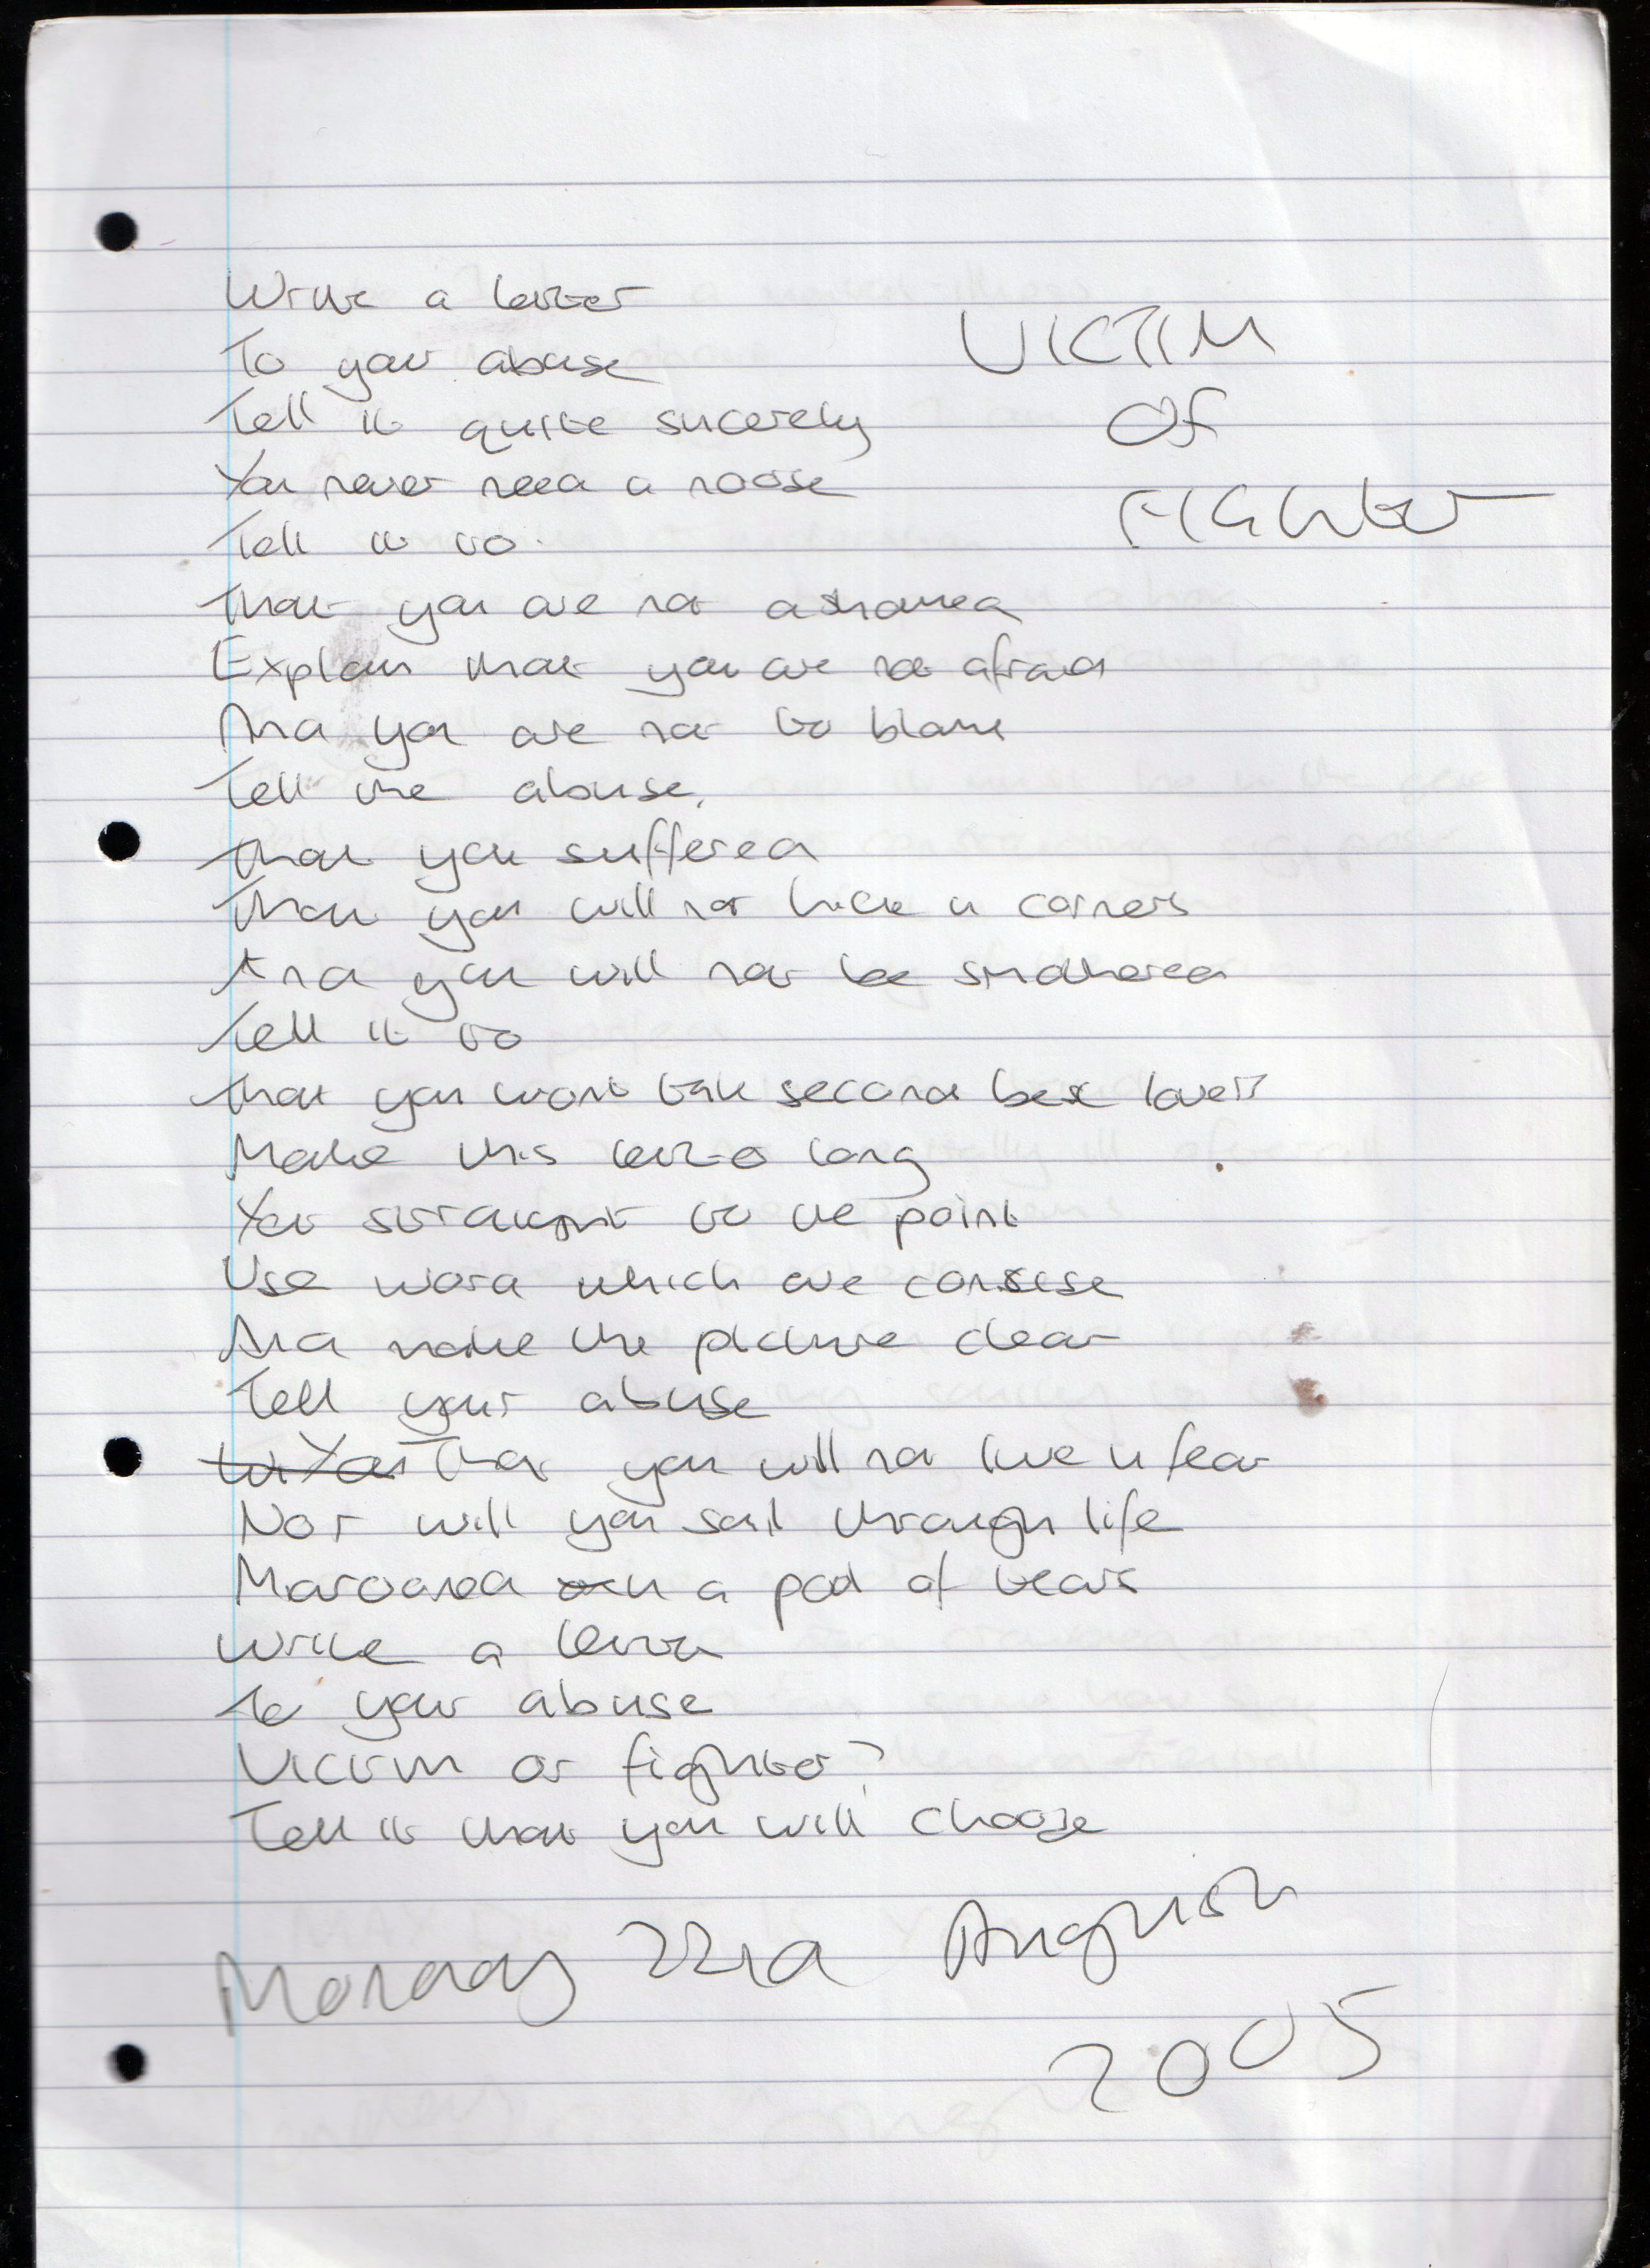 VICTIM
Or
FIGHter
Write a letter
To your abuse
Tell it quite sincerely
You never need a noose
Tell it to
That you are not ashamed
Explain that you are not afraid
And you are not to blame
Tell the abuse,
that you suffered
That you will not hide in corners
And you will not be smothered
Tell it to
that you wont take second best
Make this letter long
Yet straight to the point
Use word which are consise
And make the picture clear
Tell your abuse
That you will not live in fear
Nor will you sail through life
Marooned in a pool of tears
Write a letter
to your abuse
Victim or fighter?
Tell it that you will choose
Monday 22nd August
2005